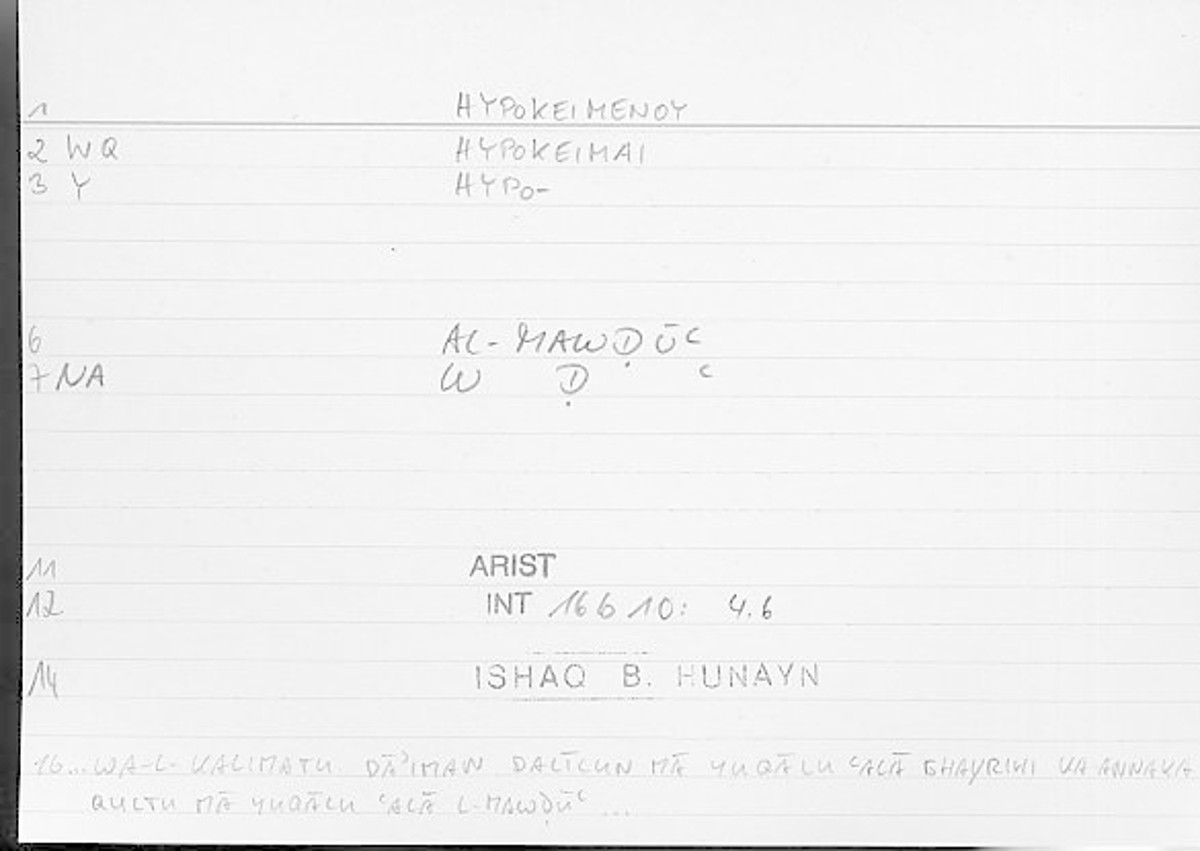 1 HYPOKEIMENOY
2 WQ HYPOKEIMAI
3 Y HYPO-
6 AL-MAWḌŪʿ
7 NA W Ḍ ʿ
11 ARIST
12 INT 16 b 10: 4.6
14 ISHAQ B. HUNAYN
16... WA-L-KALIMATU DĀʾIMAN DALĪLUN MĀ YUQĀLU ʿALĀ GHAYRIHI KA ANNAKA
QULTU MĀ YUQĀLU ʿALĀ L-MAWḌŪʿ ...